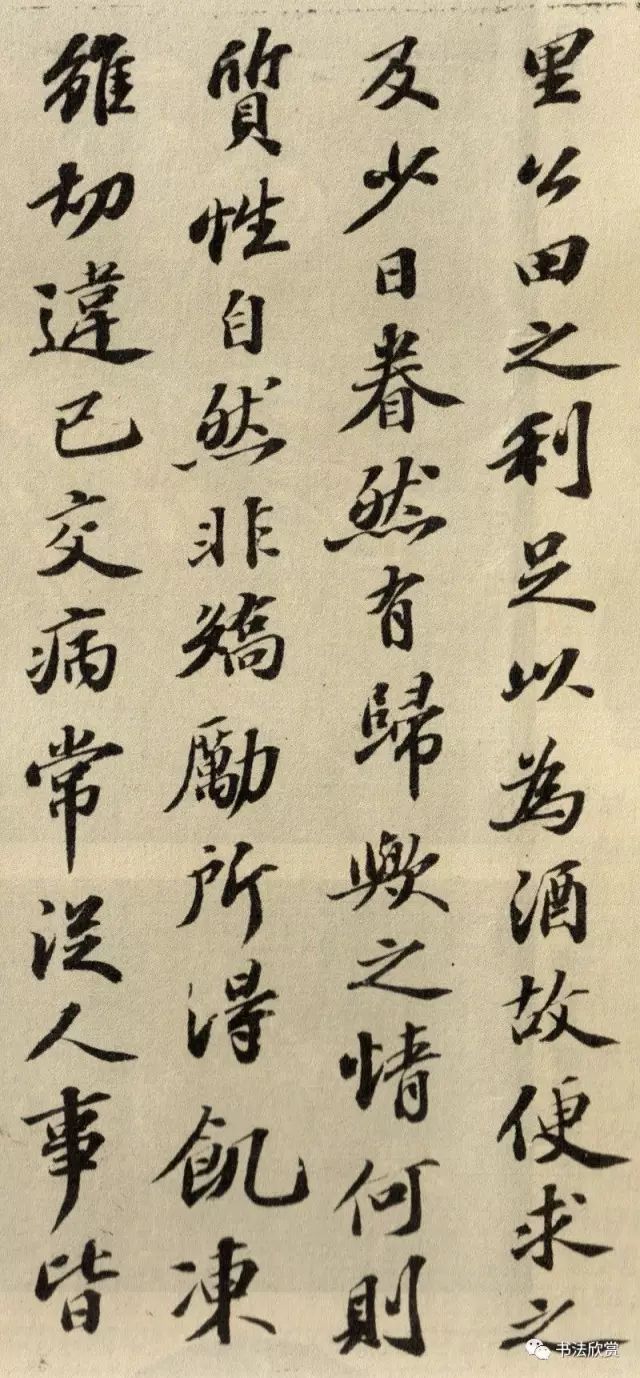 里公田之利足以為酒故便求之
及少日眷然有歸歟之情何則
質性自然非矯勵所得飢凍
雖切違己交病常從人事皆
书法欣赏